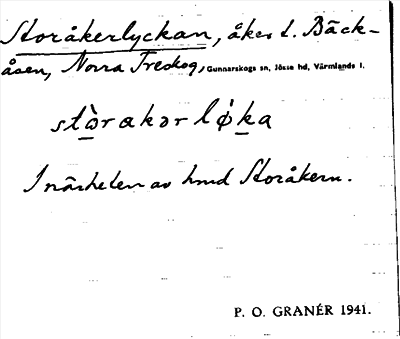 Storåkerlyckan, åker t. Bäck-
åsen, Norra Treskog, Gunnarskogs sn, Jösse hd, Värmlands l.
stòrakərløka
I närheten av hmd Storåkern.
P. O. GRANÉR 1941.